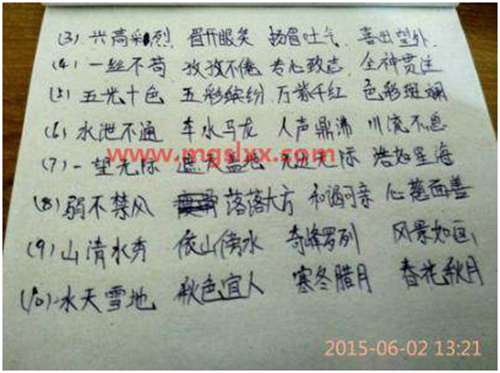 (3) 兴高彩烈 眉开眼笑 扬眉吐气 喜出望外
(4) 一丝不苟 孜孜不倦 专心致志 全神贯注
(5) 五光十色 五彩缤纷 万紫千红 色彩斑斓
(6) 水泄不通 车水马龙 人声鼎沸 川流不息
www.mgslxx.com
(7) 一望无际 无边无际 浩如星海
(8) 弱不禁风 落落大方 和谒可亲 心慈面善
(9) 山清水秀 依山傍水 奇峰罗列 风景如画
(10) 水天雪地 秋色宜人 寒冬腊月 春花秋月
2015-06-02 13:21